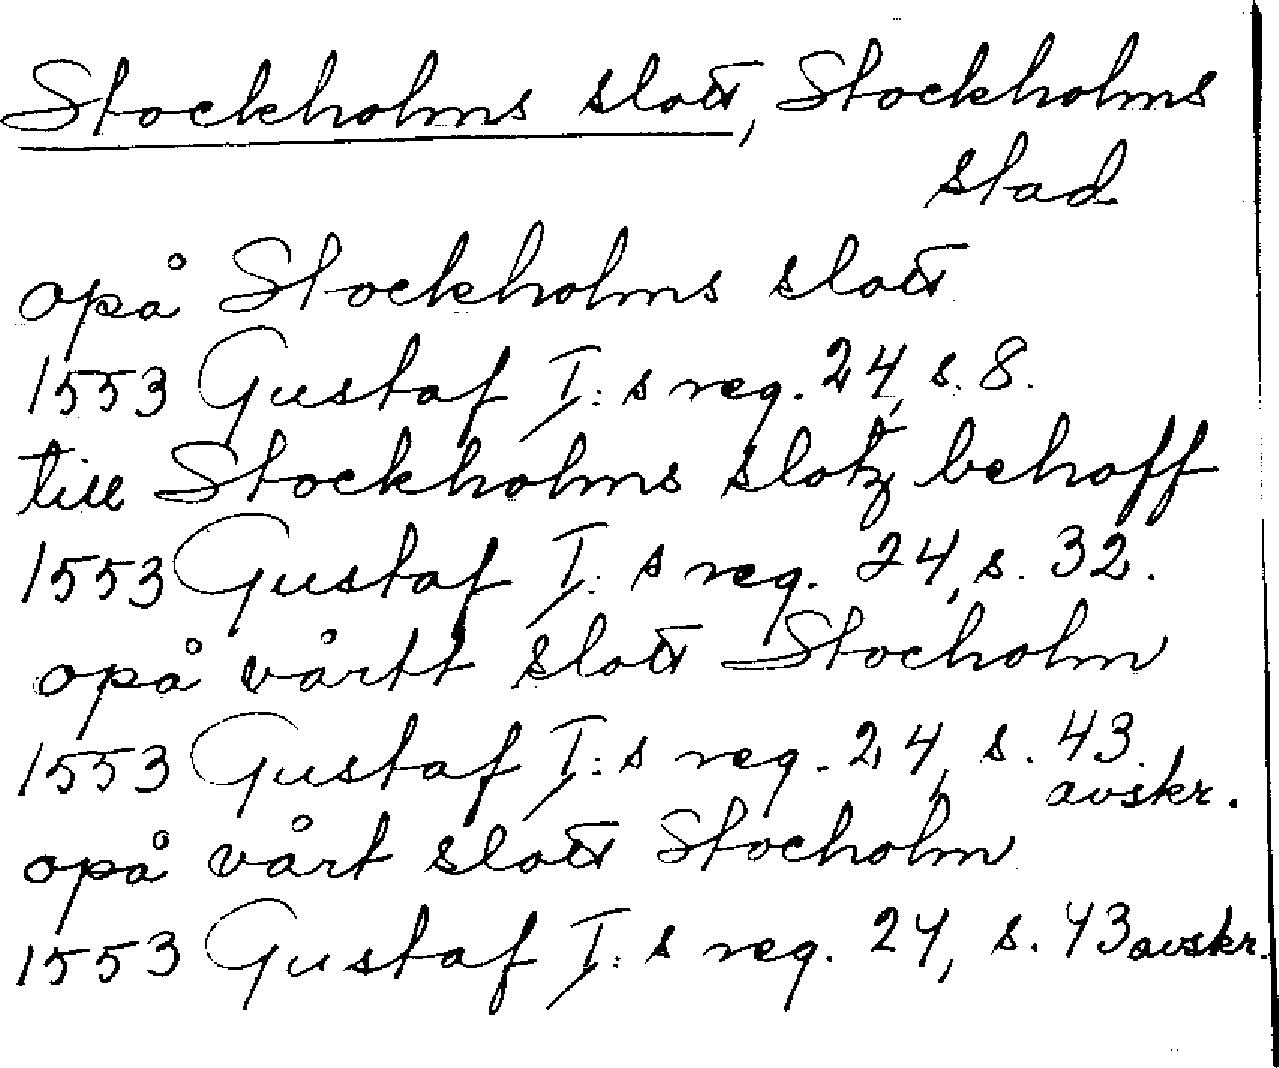 Stockholms slott, Stockholms
stad
opå Stockholms slott
1553 Gustaf I:s reg. 24, s. 8.
till Stockholms slotz behoff
1553 Gustaf I:s reg. 24, s. 32.
opå vårtt slott Stocholm
1553 Gustaf I:s reg. 24, s. 43.
avskr.
opå vårt slott Stocholm
1553 Gustaf I:s reg. 24, s. 43 avskr.